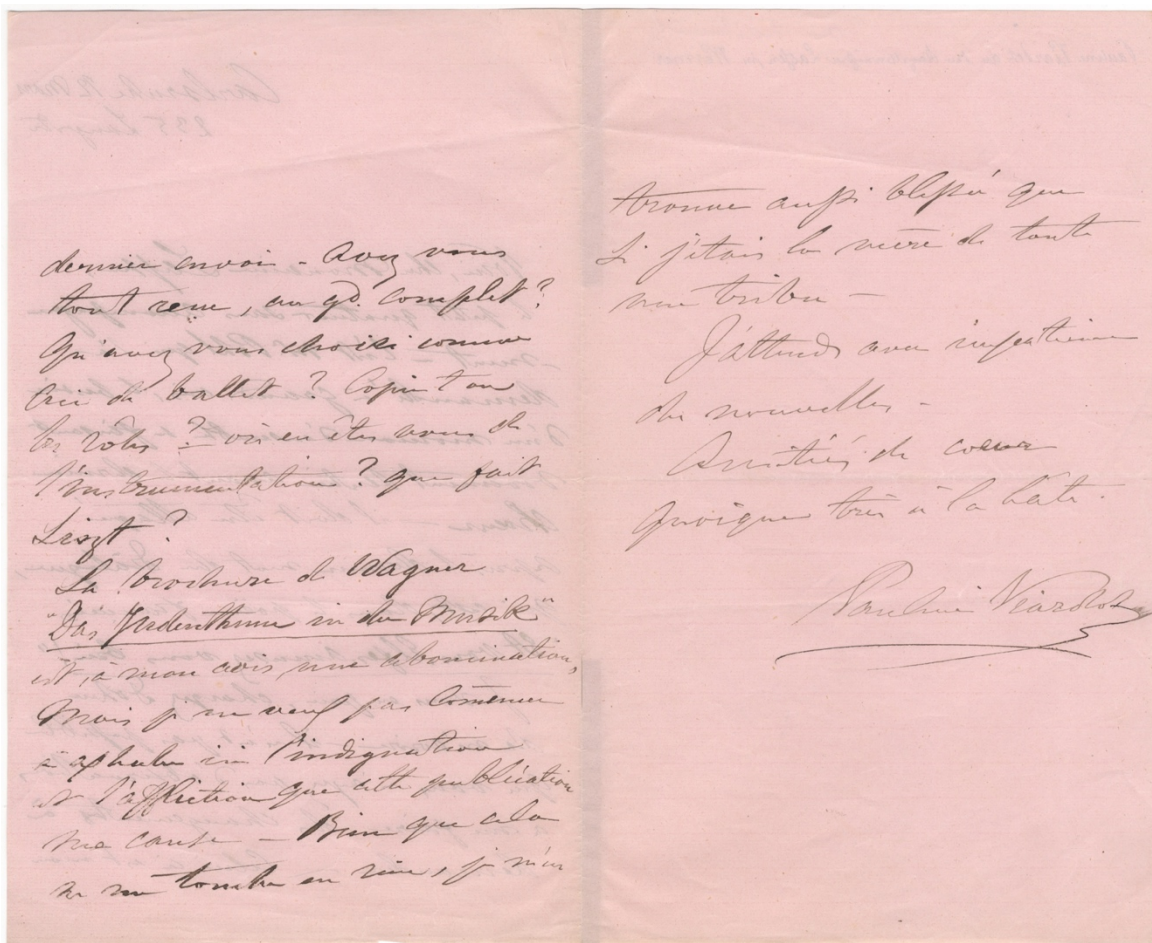 dernier envoi – Avez vous
tout reçu, au gd. complet?
Qu'avez vous choisi comme
de ballet? Copie t'on
les rôles? – où en êtes vous de
l'instrumentation? que fait
Liszt?
La brochure de Wagner
"Das Judenthum in der Musik"
est, à mon avis, une abomination,
Mais je ne veux pas commencer
à exhaler ici l'indignation
et l'affliction que cette publication
me cause – Bien que cela
ne me touche en rien, je m'en
trouve aussi blessée que
si j'étais la mère de toute
une tribu –
J'attends avec impatience
des nouvelles –
Amitiés de coeur
quoique très à la hâte.
Pauline Viardot